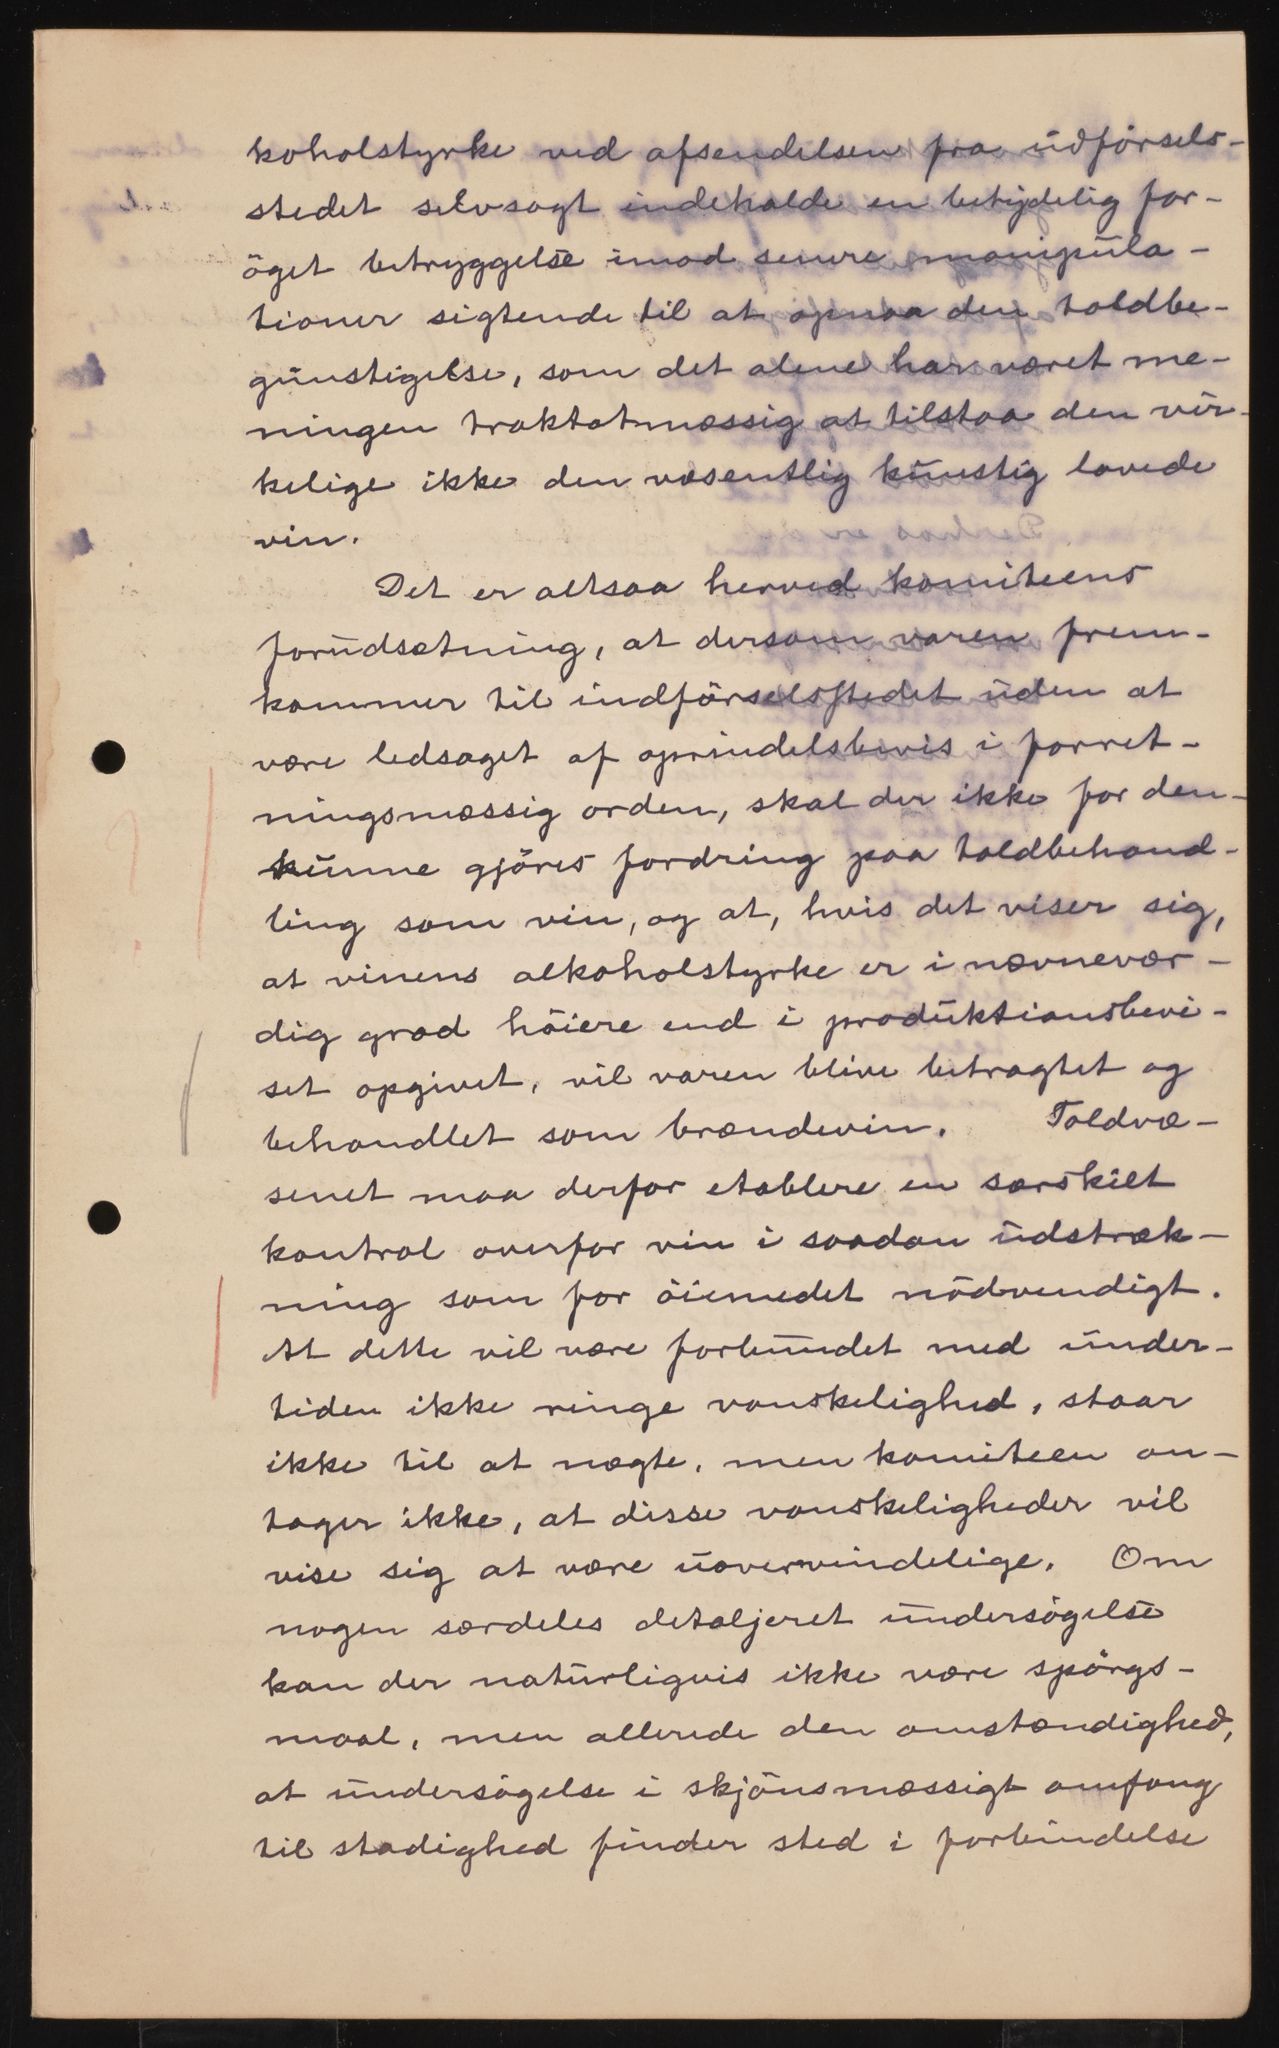 koholstyrke ved afsendelsen fra udförsels-
stedet selvsagt indeholde en betydelig for-
öget betryggelse imod senere manipula-
tioner sigtende til at opnaa den toldbe-
gunstigelse, som det alene har været me-
ningen traktatmæssig at tilstaa den vir-
kelige ikke den væsentlig kunstig lavede
vin.
Det er altsaa herved komiteens
forudsætning, at dersom varen frem-
kommer til indförselsstedet uden at
være ledsaget af oprindelsbevis i forret-
ningsmæssig orden, skal der ikke for den
kunne gjöres fordring paa toldbehand-
ling som vin, og at, hvis det viser sig,
at vinens alkoholstyrke er i nævnevær-
dig grad höiere end i produktionsbevi-
set opgivet, vil varen blive betragtet og
behandlet som brændevin. Toldvæ-
senet maa derfor etablere en særskilt
kontrol overfor vin i saadan udstræk-
ning som for öiemedet nödvendigt.
At dette vil være forbundet med under-
tiden ikke ringe vanskelighed, staar
ikke til at nægte, men komiteen an-
tager ikke, at disse vanskeligheder vil
vise sig at være uovervindelige. Om
nogen særdeles detaljeret undersögelse
kan der naturligvis ikke være spörgs-
maal, men allerede den omstændighed,
at undersögelse i skjönsmæssigt omfang
til stadighed finder sted i forbindelse